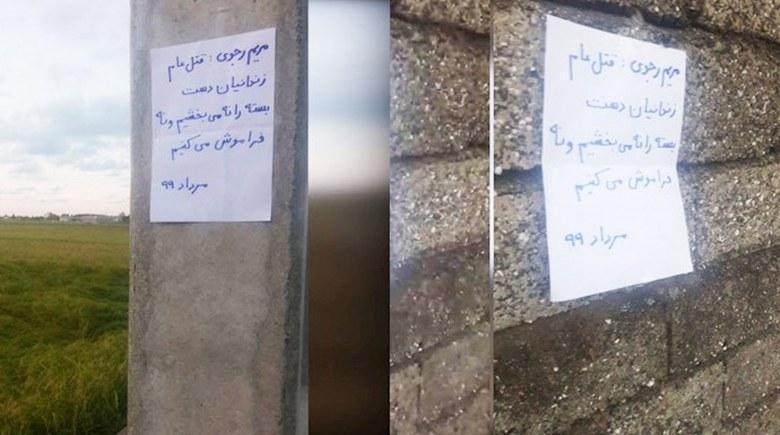 مریم رجوی : قتل عام
زندانیان دست
بسته را نه می بخشیم و نه
فراموش می کنیم
مرداد ۹۹
مریم رجوی : قتل عام
زندانیان دست
بسته را نه می بخشیم و نه
فراموش می کنیم
مرداد ۹۹